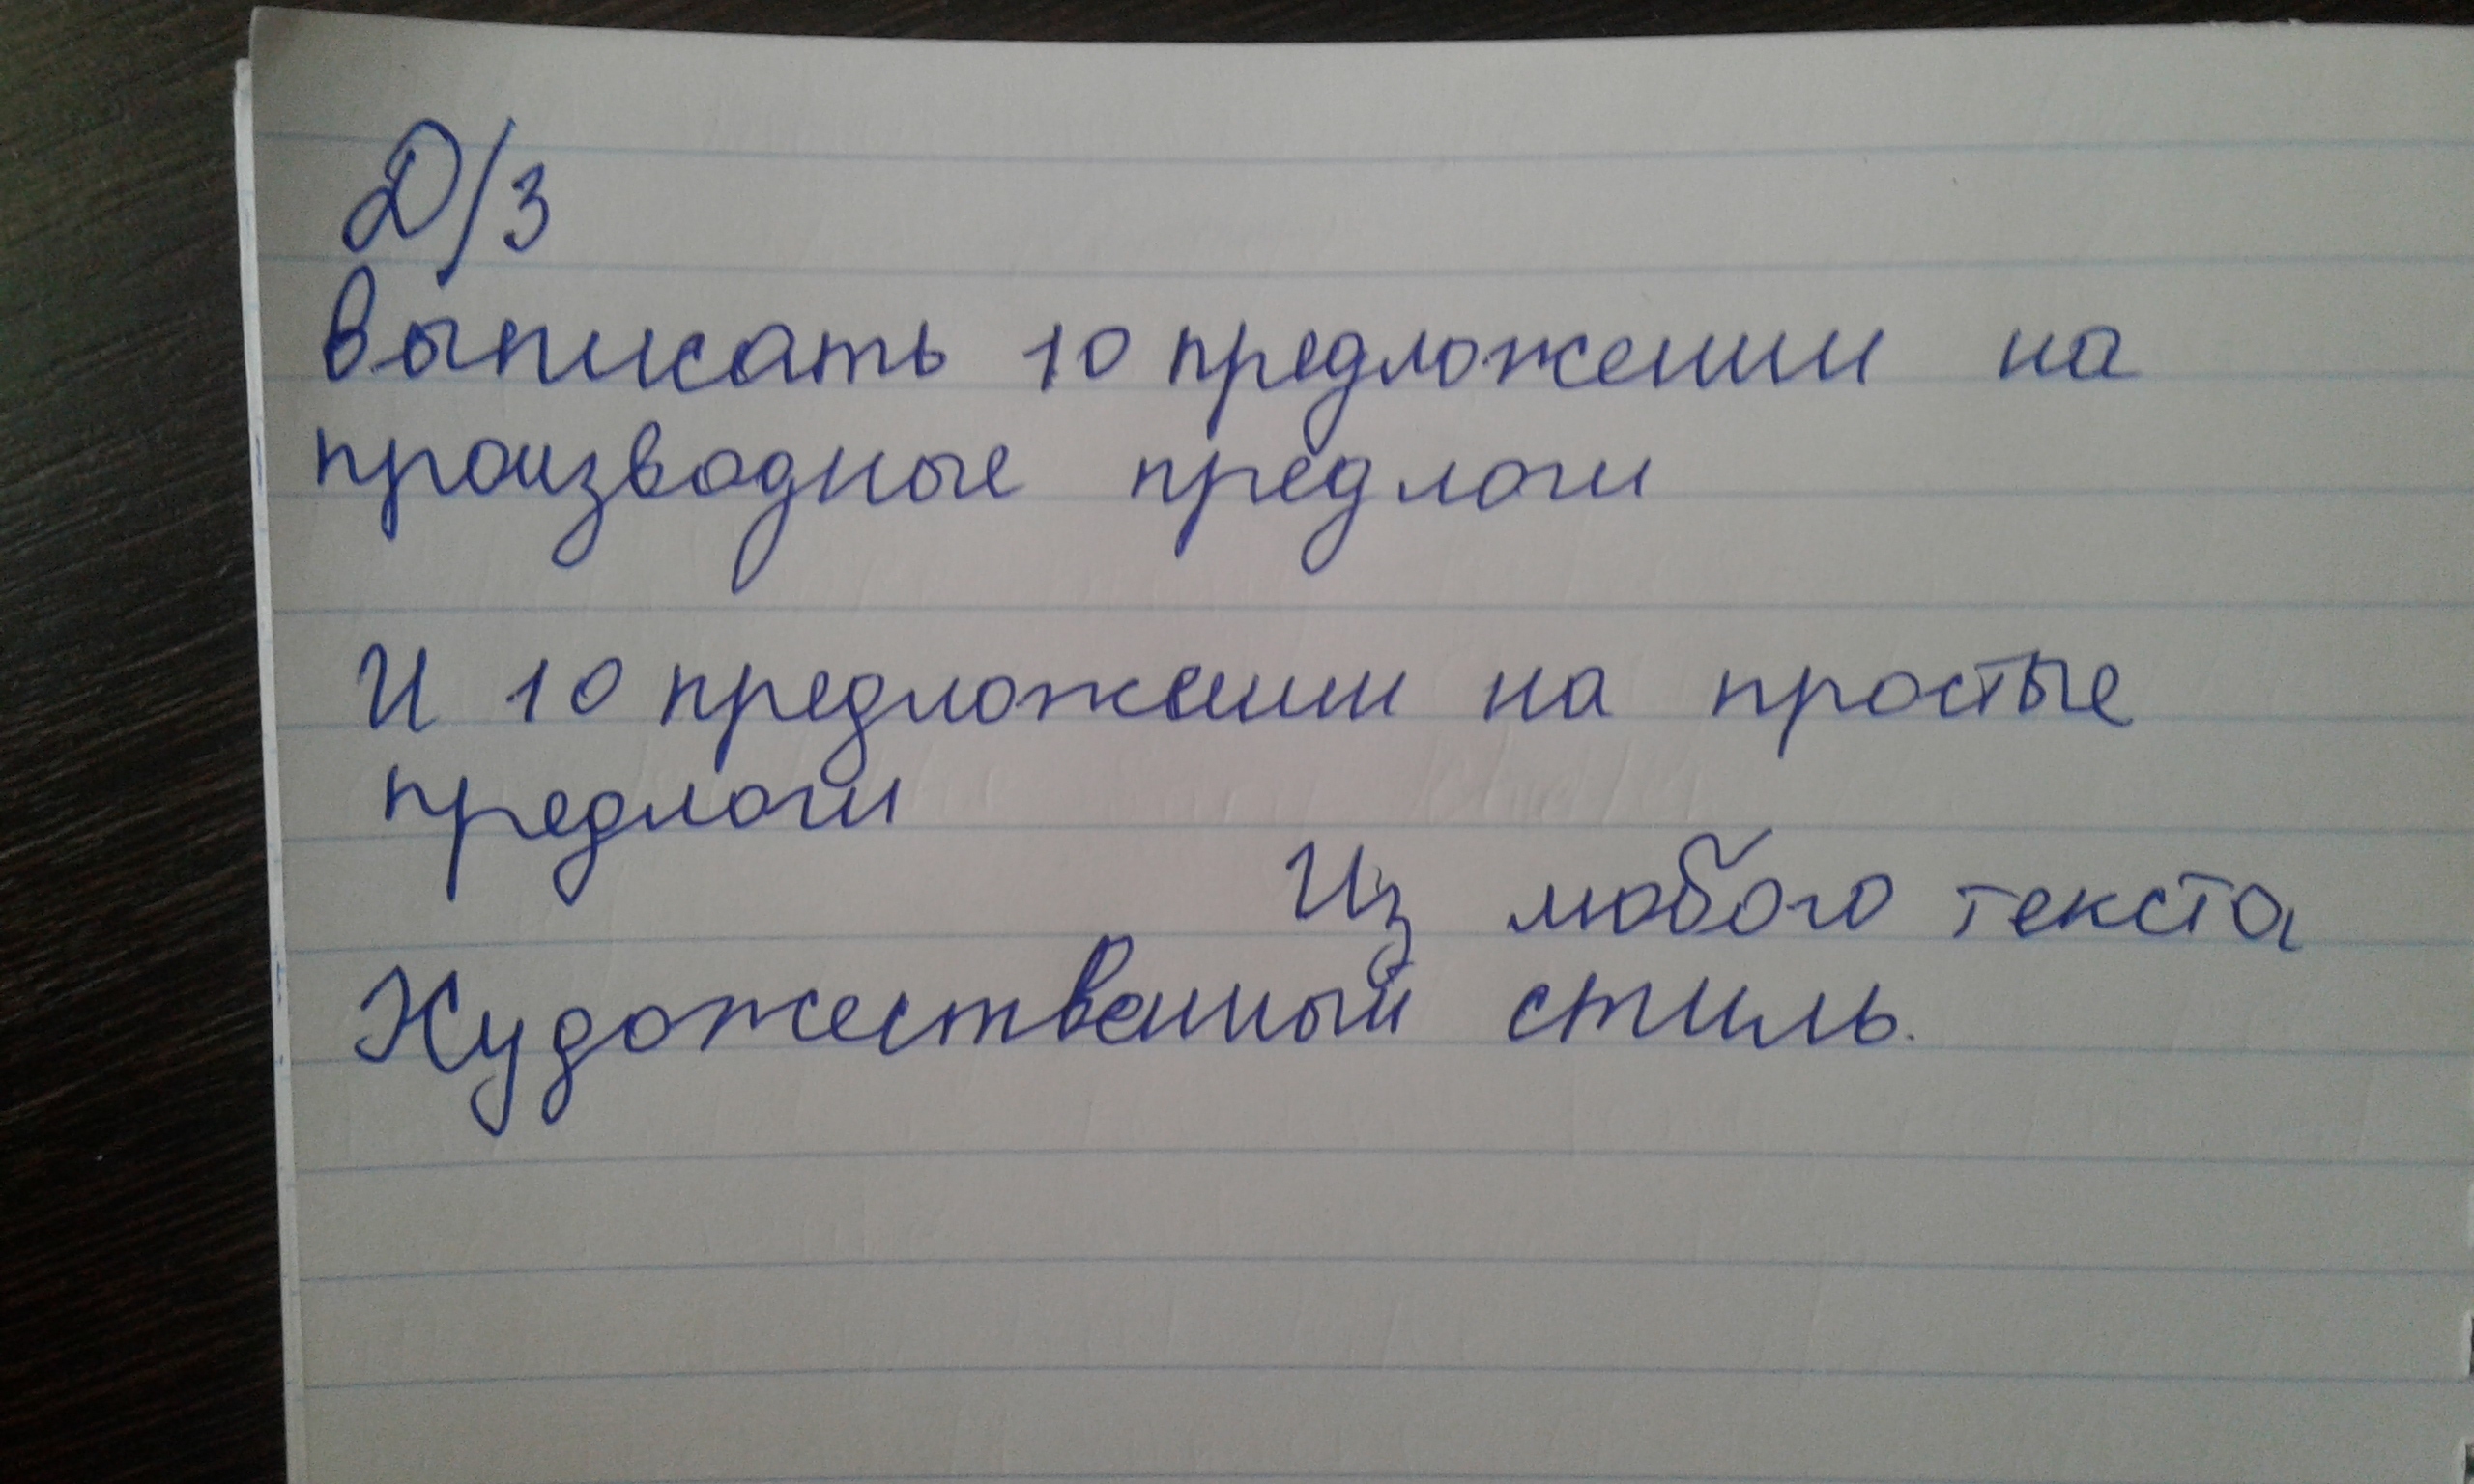 Д/З
Выписать 10 предложении на
производные предлоги
И 10 предложении на простые
предлоги
Из любого текста
Художественный стиль.